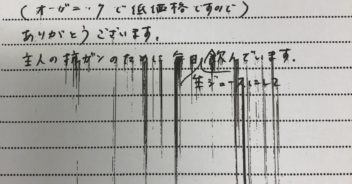 (オーガニックで低価格ですので)
ありがとうございます。
主人の抗ガンのために毎日飲んでいます。
ジュースにして